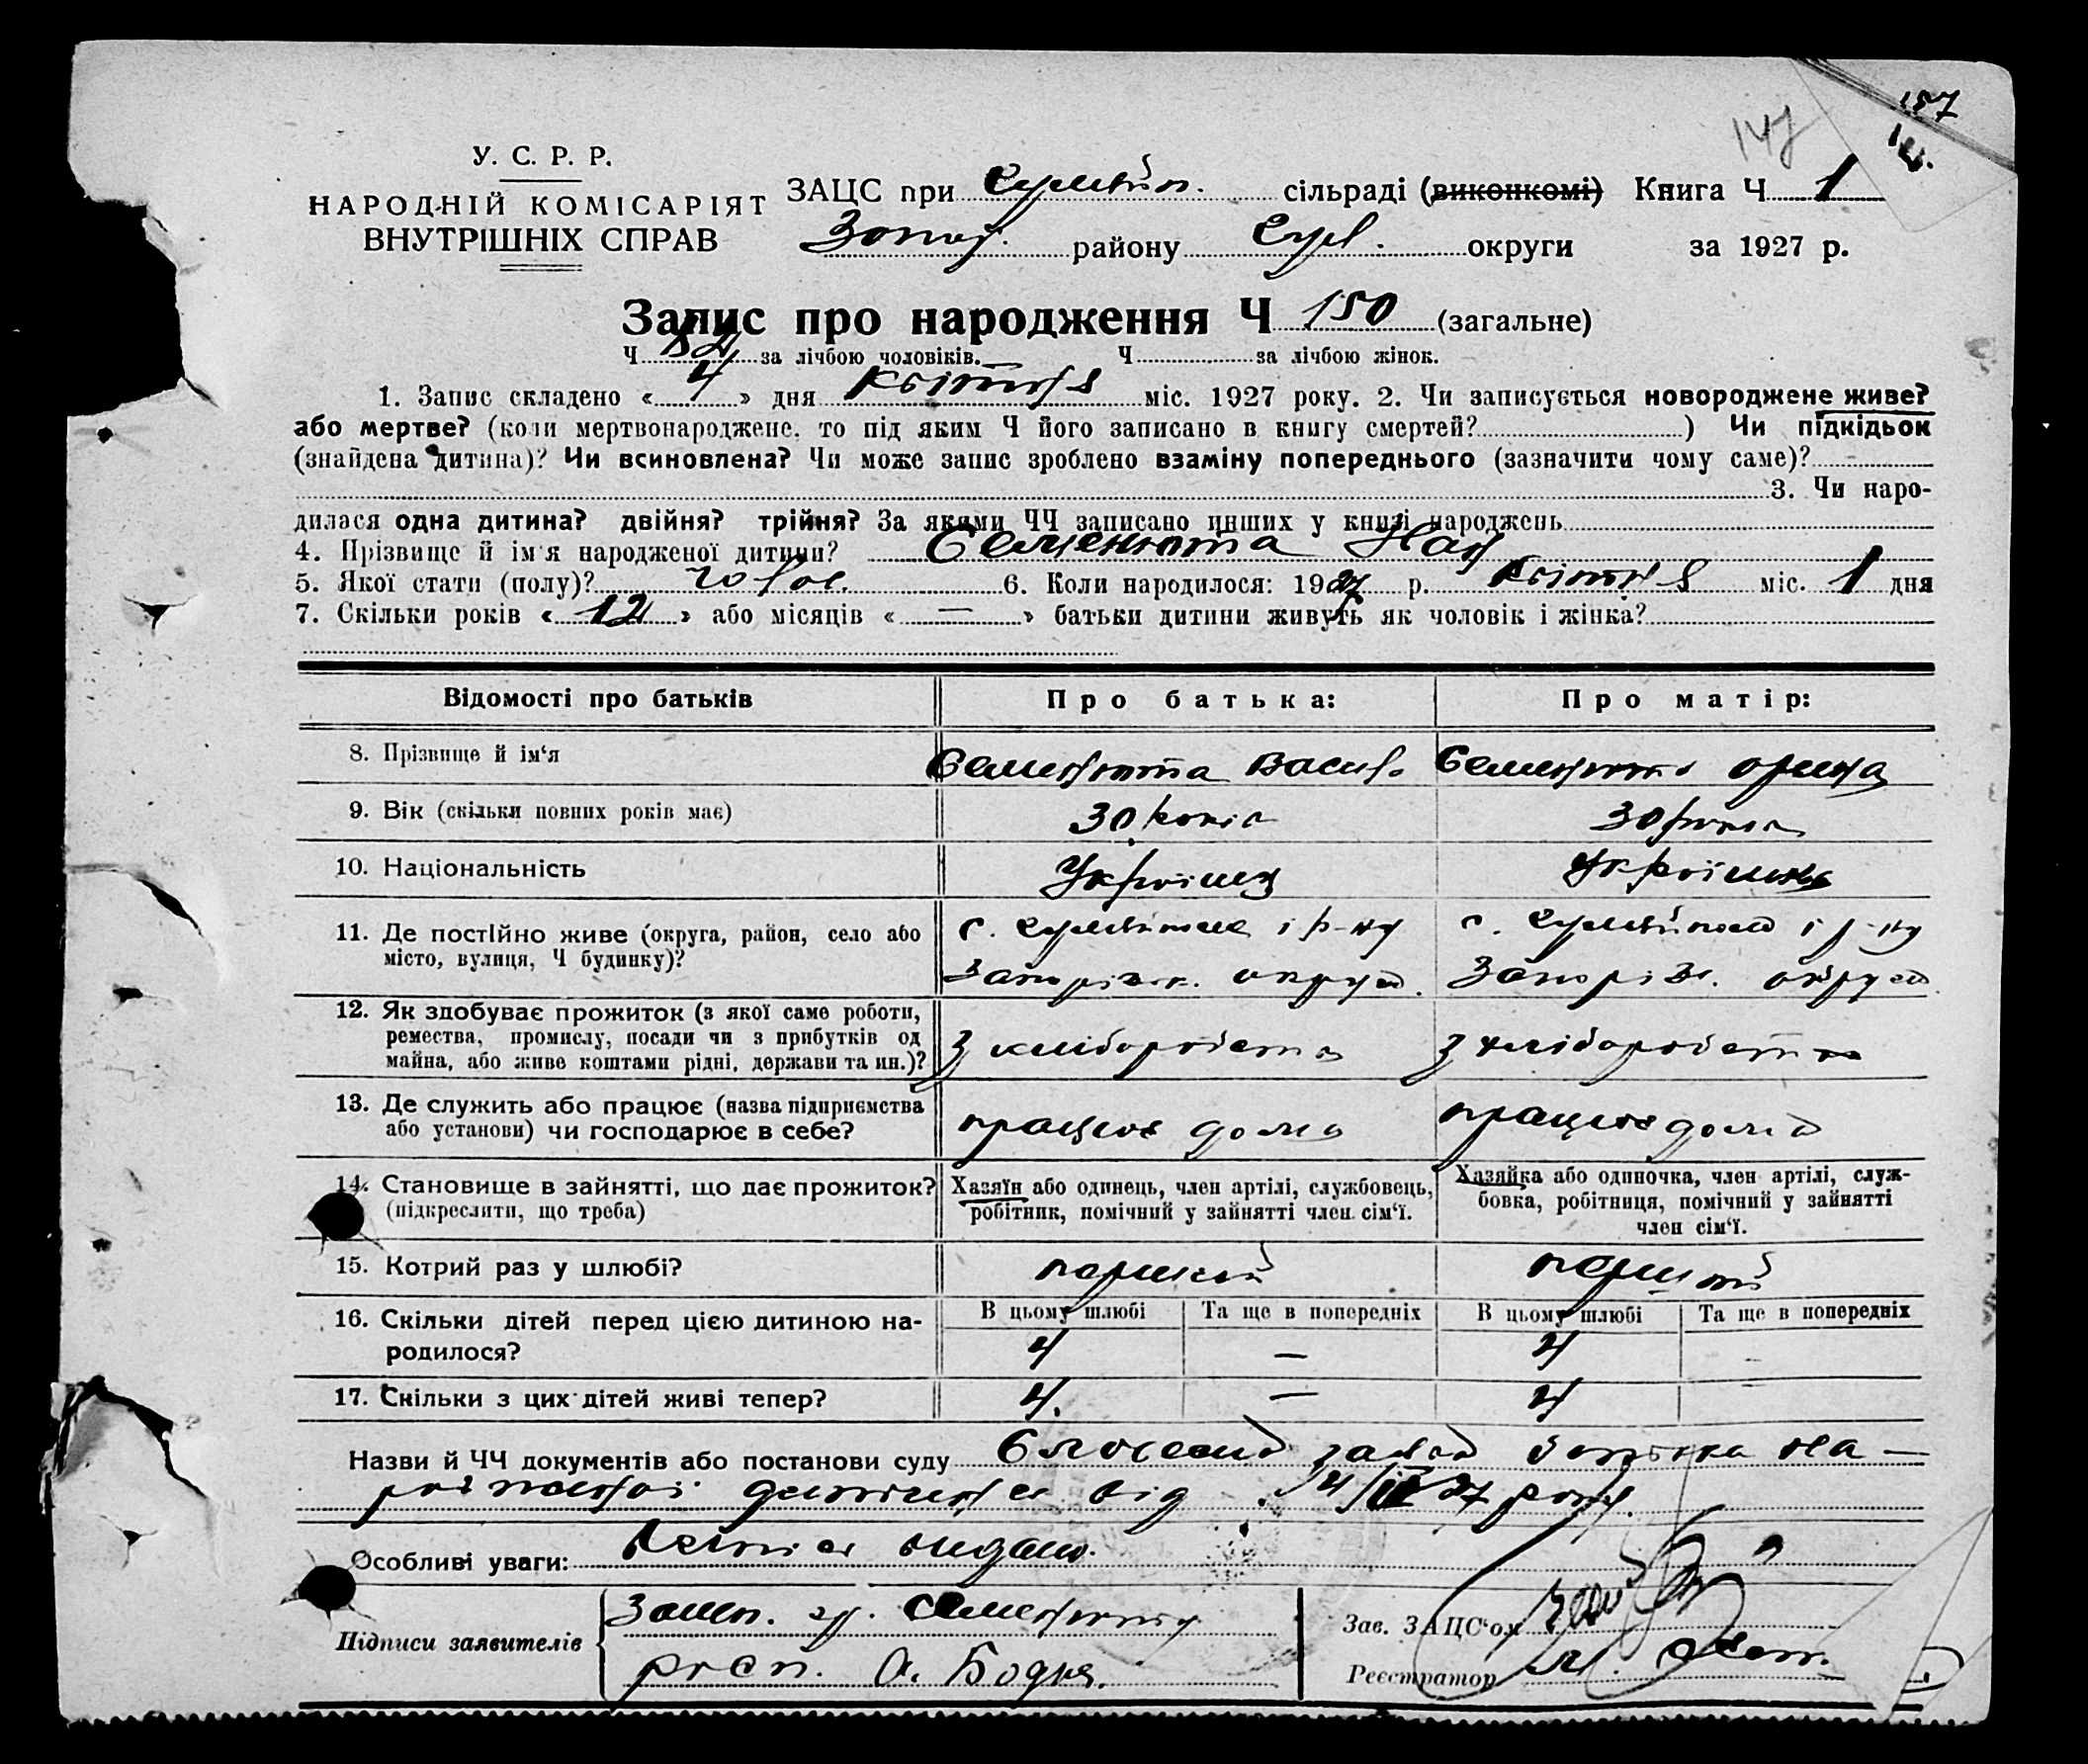 157
147
У. С. Р. Р.
НАРОДНІЙ КОМІСАРІЯТ
ВНУТРІШНІХ СПРАВ
ЗАЦС при сільраді (виконкомі) Книга Ч 1
району округи за 1927 р.
Запис про народження Ч 150 (загальне)
Ч за лічбою чоловіків. Ч за лічбою жінок.
1. Запис складено « 4 » дня квітня міс. 1927 року. 2. Чи записується новороджене живе?
або мертве? (коли мертвонароджене, то під яким Ч його записано в книгу смертей? ) Чи підкідьок
(знайдена дитина)? Чи всиновлена? Чи може запис зроблено взаміну попереднього (зазначити чому саме)?
3. Чи наро-
дилася одна дитина? двійня? трійня? За якими ЧЧ записано инших у книзі народжень
4. Прізвище й ім'я народженої дитини? Семенюта
5. Якої стати (полу)? чолов. 6. Коли народилося: 1927 р. квітня міс. 1 дня
7. Скільки років « 12 » або місяців « — » батьки дитини живуть як чоловік і жінка?
Відомості про батьків Про батька: Про матір:
8. Прізвище й ім'я Семенюта Василь Семенюта Орина
9. Вік (скільки повних років має) 30 років 30 років
10. Національність Українец Українка
11. Де постійно живе (округа, район, село або с. і р-ну с. і р-ну
місто, вулиця, Ч будинку)? Запоріжж. округи Запоріж. округи
12. Як здобуває прожиток (з якої саме роботи,
ремества, промислу, посади чи з прибутків од з хліборобства з хліборобства
майна, або живе коштами рідні, держави та ин.)?
13. Де служить або працює (назва підприємства працює дома працює дома
або установи) чи господарює в себе?
14. Становище в зайнятті, що дає прожиток? Хазяїн або одинець, член артілі, службовець, Хазяйка або одиночка, член артілі, служ-
(підкреслити, що треба) робітник, помічний у зайнятті член сім'ї. бовка, робітниця, помічний у зайнятті
член сім'ї.
15. Котрий раз у шлюбі? перший перший
16. Скільки дітей перед цією дитиною на- В цьому шлюбі Та ще в попередніх В цьому шлюбі Та ще в попередніх
родилося? 4 — 4 –
17. Скільки з цих дітей живі тепер? 4. — 4 -
Назви й ЧЧ документів або постанови суду заява батька на-
від 4/IV 27 року.
Особливі уваги: видано.
Підписи заявителів
росп. О. Бодня.
Зав. ЗАЦС'ом
Реєстратор